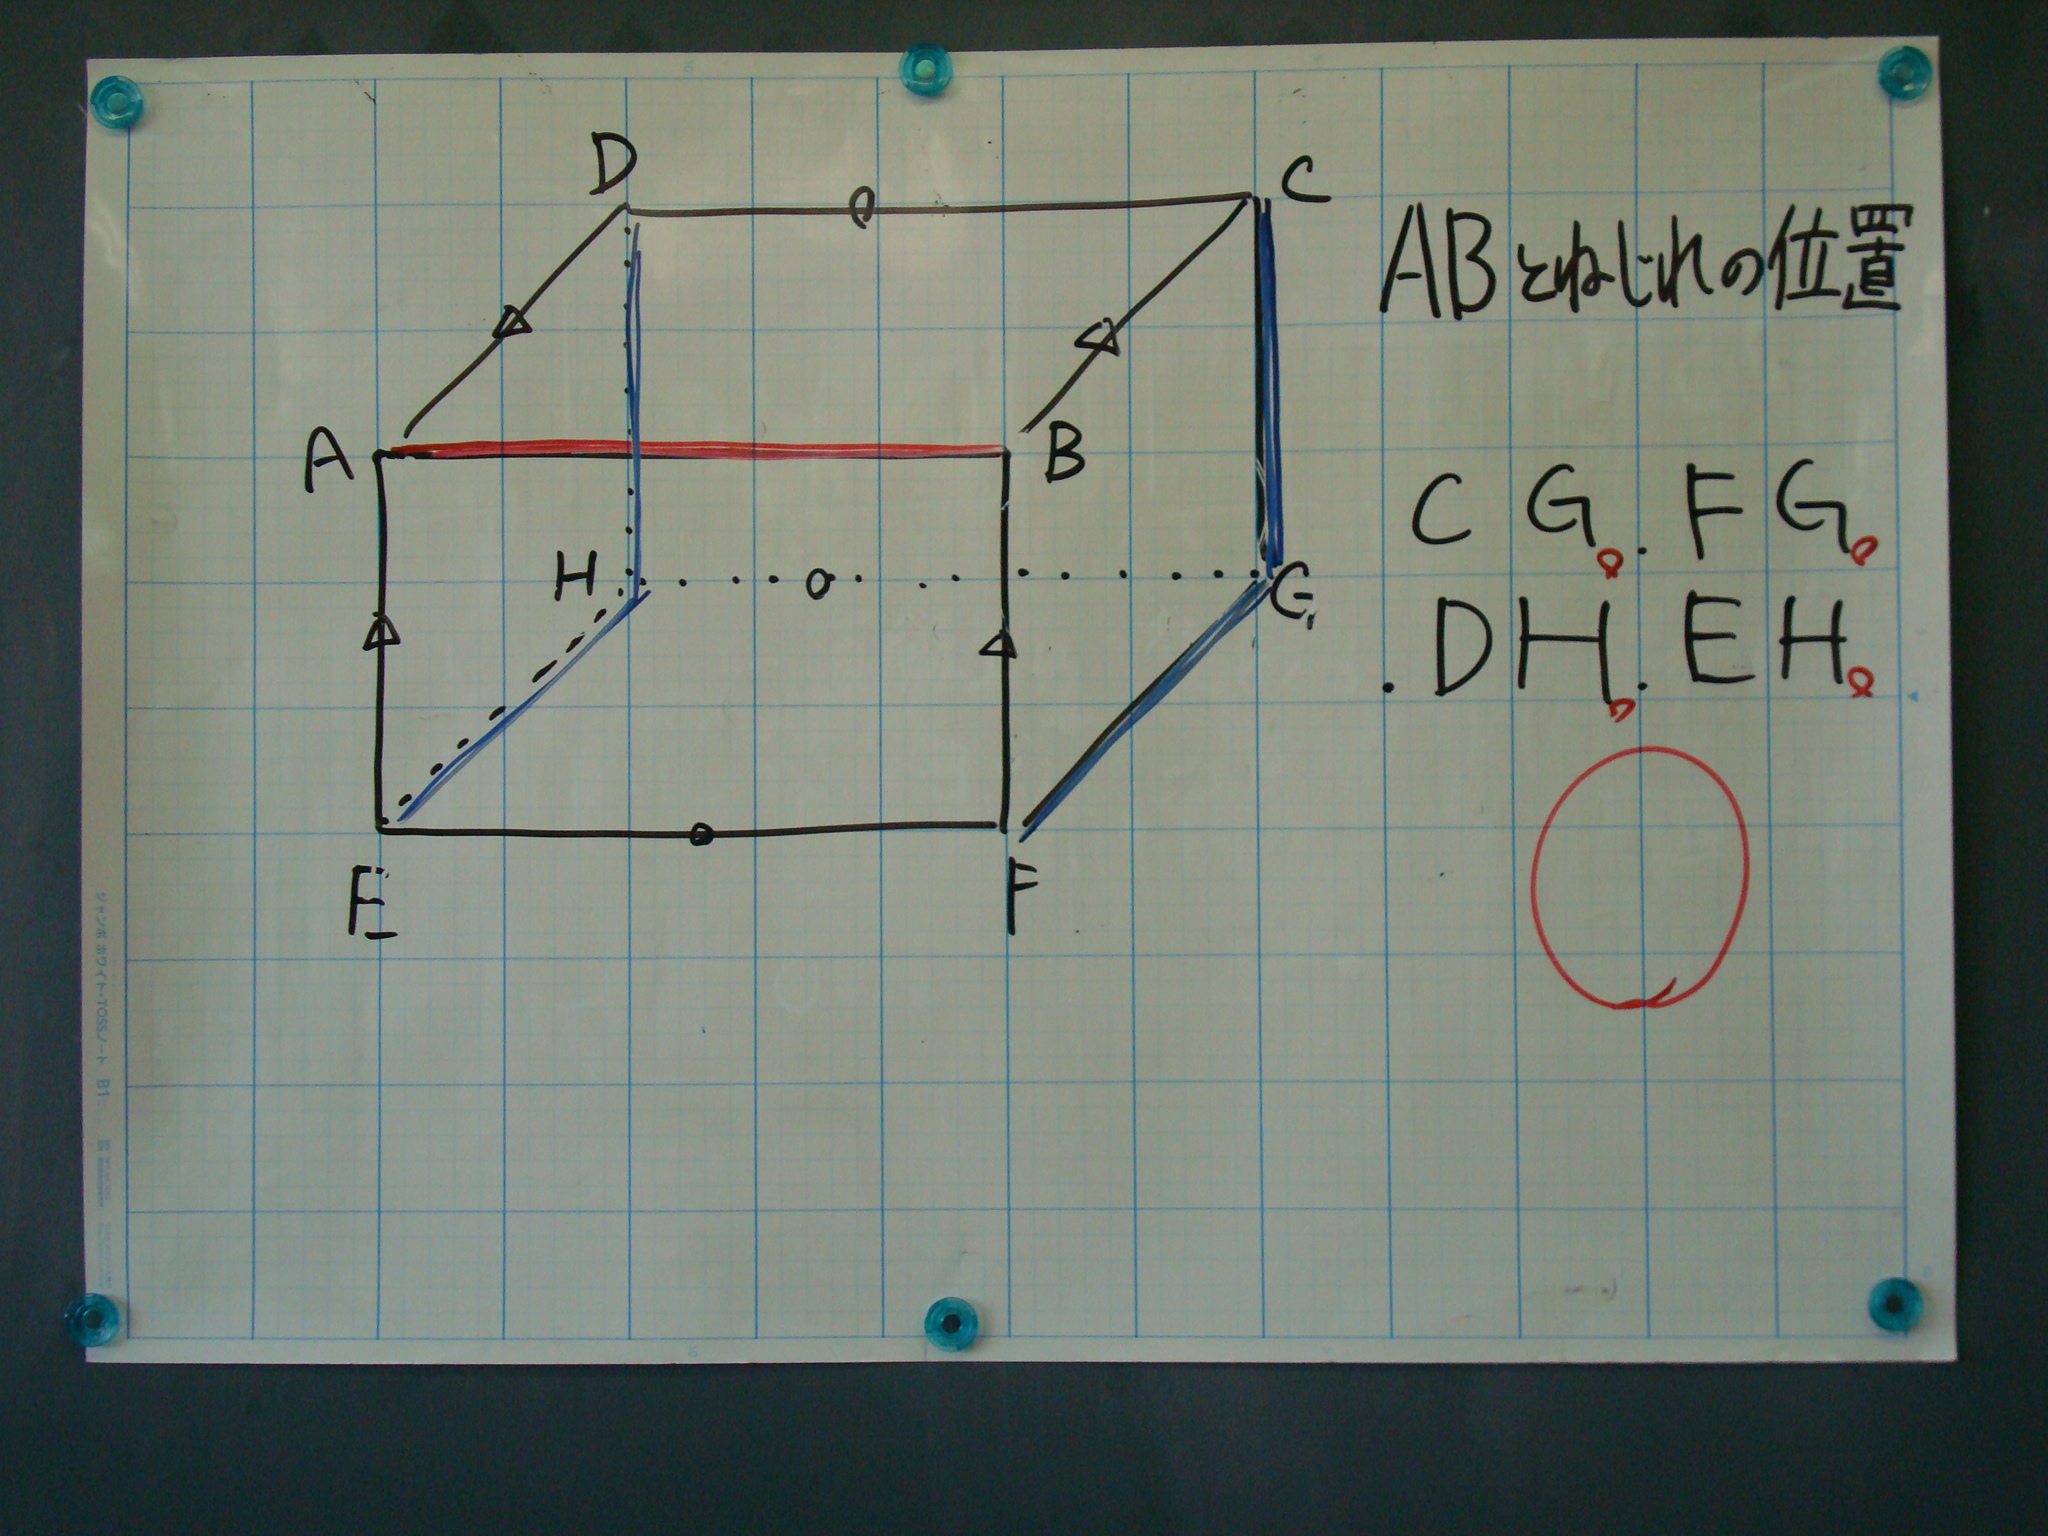 D
C
ABとねじれの位置
A
B
CG.FG
H
G
.DH.EH
E
F
ジャンボ ホワイト・TOSSノート B1